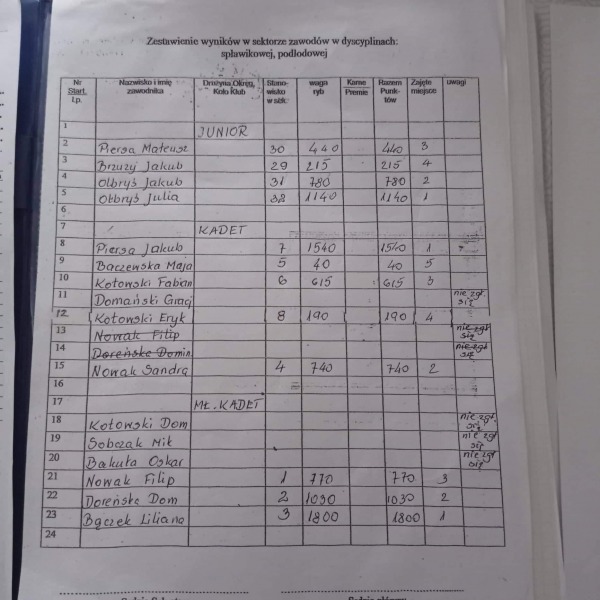 Zestawienie wyników w sektorze zawodów w dyscyplinach:
spławikowej, podlodowej
Nr Start. Lp. Nazwisko i imię zawodnika Drużyna Okręg, Koło Klub Stanowisko w sekt. waga ryb Karne Premie Razem Punktów Zajęte miejsce uwagi
1 JUNIOR
2 Piersa Mateusz 30 440 440 3
3 Brzuzy Jakub 29 215 215 4
4 Olbryś Jakub 31 780 780 2
5 Olbryś Julia 32 1140 1140 1
6
7 KADET
8 Piersa Jakub 7 1540 1540 1
9 Baczewska Maja 5 40 40 5
10 Kotowski Fabian 6 615 615 3
11 Domański Gracj nie zgł. się
12 Kotowski Eryk 8 190 190 4
13 Nowak Filip nie zgł się
14 Doreńska Domin. nie zgł się
15 Nowak Sandra 4 740 740 2
16
17 MŁ. KADET
18 Kotowski Dom nie zgł. się
19 Sobczak Mik nie zgł się
20 Bakuła Oskar nie zgł się
21 Nowak Filip 1 770 770 3
22 Doreńska Dom 2 1030 1030 2
23 Bączek Liliana 3 1800 1800 1
24